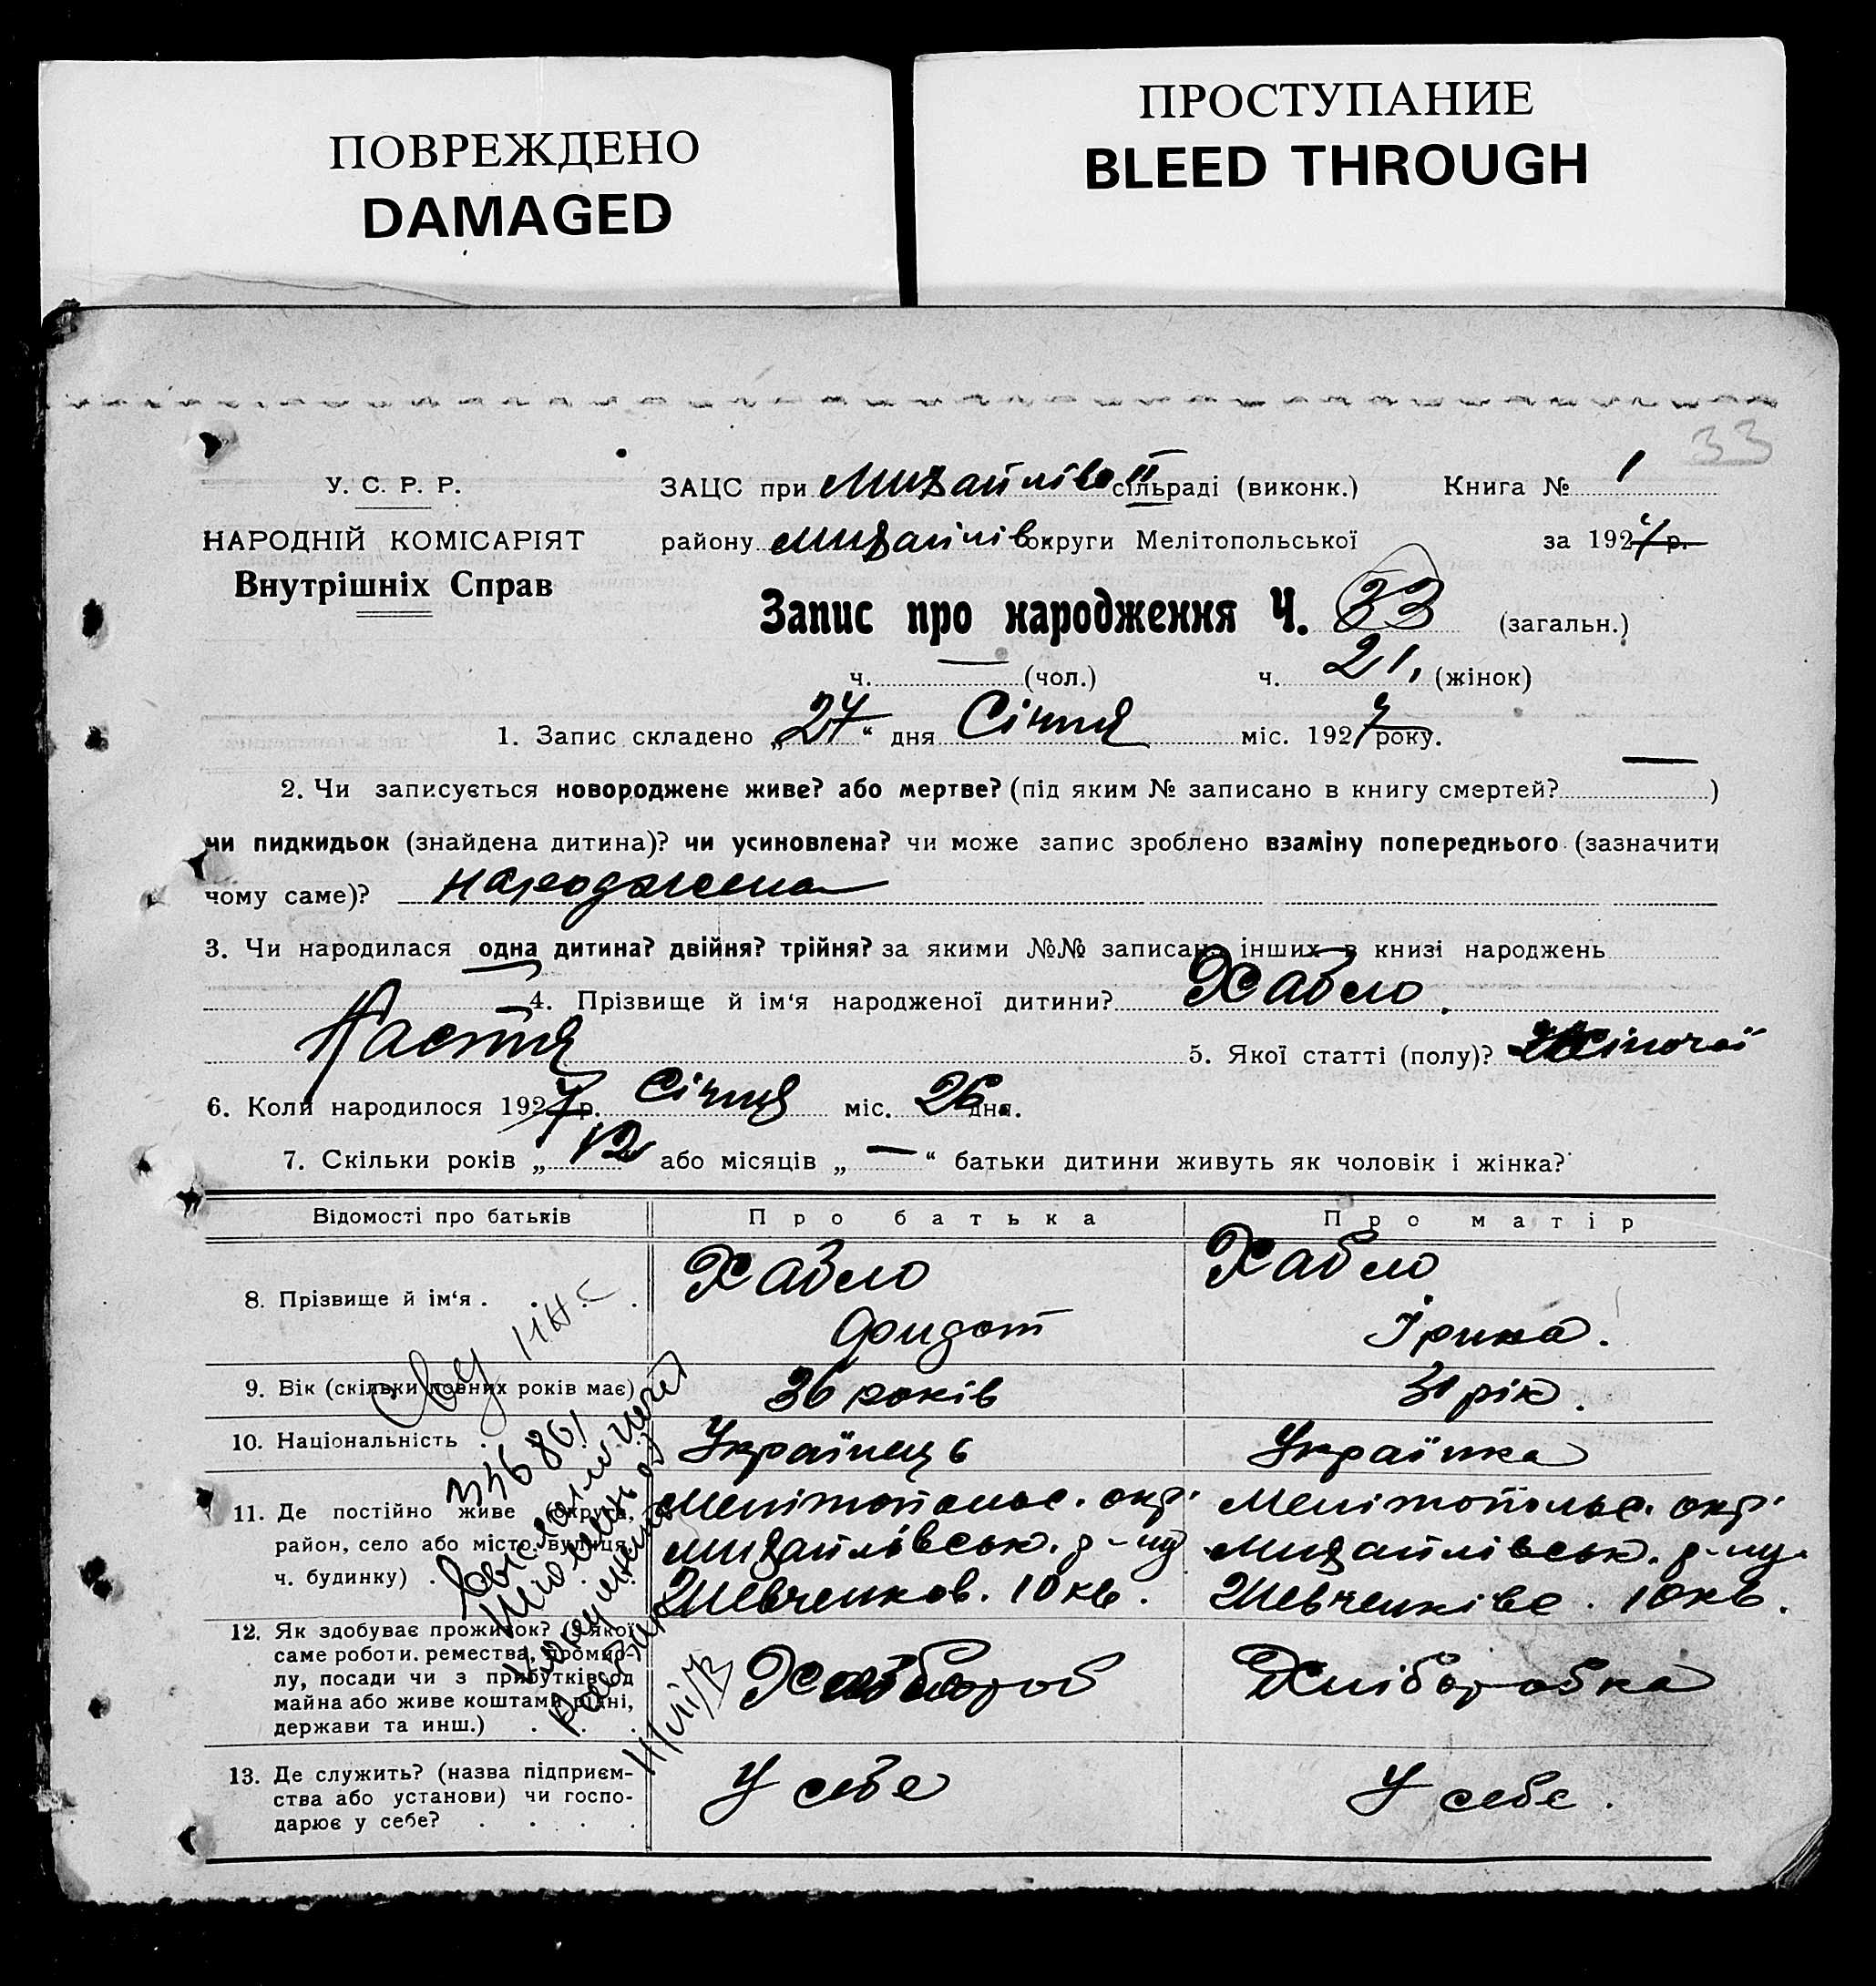 ПОВРЕЖДЕНО
DAMAGED
ПРОСТУПАНИЕ
BLEED THROUGH
33
У. С. Р. Р.
НАРОДНІЙ КОМІСАРІЯТ
Внутрішніх Справ
ЗАЦС при Михайлів II сільраді (виконк.) Книга № 1
району Михайлів округи Мелітопольської за 1927 р.
Запис про народження Ч. 33 (загальн.)
ч. — (чол.) ч. 21, (жінок)
1. Запис складено „27“ дня Січня міс. 1927 року.
2. Чи записується новороджене живе? або мертве? (під яким № записано в книгу смертей? — )
чи пидкидьок (знайдена дитина)? чи усиновлена? чи може запис зроблено взаміну попереднього (зазначити
чому саме)? народжена
3. Чи народилася одна дитина? двійня? трійня? за якими №№ записано інших в книзі народжень
4. Прізвище й ім‘я народженої дитини? Хабло
Настя 5. Якої статті (полу)? Жіночої
6. Коли народилося 1927 р. Січня міс. 26 дня.
7. Скільки років „ 12 “ або місяців „ — “ батьки дитини живуть як чоловік і жінка?
Відомості про батьків Про батька Про матір
8. Прізвище й ім‘я . Хабло Хабло
Ірина.
9. Вік (скільки повних років має) 36 років 31 рік.
10. Національність . Українець Українка
11. Де постійно живе (округа, Мелітопольс. окр. Мелітопольс. окр.
район, село або місто, вулиця, Михайлівськ. р-ну Михайлівськ. р-ну
ч. будинку) . Шевченков. 10 кв. Шевченківс. 10 кв.
12. Як здобуває прожиток? (з якої
саме роботи, ремества, промис-
лу, посади чи з прибутків од Хлібороб Хліборобка
майна або живе коштами рідні,
держави та инш.) .
13. Де служить? (назва підприєм- У себе У себе.
ства або установи) чи госпо-
дарює у себе? . . . .